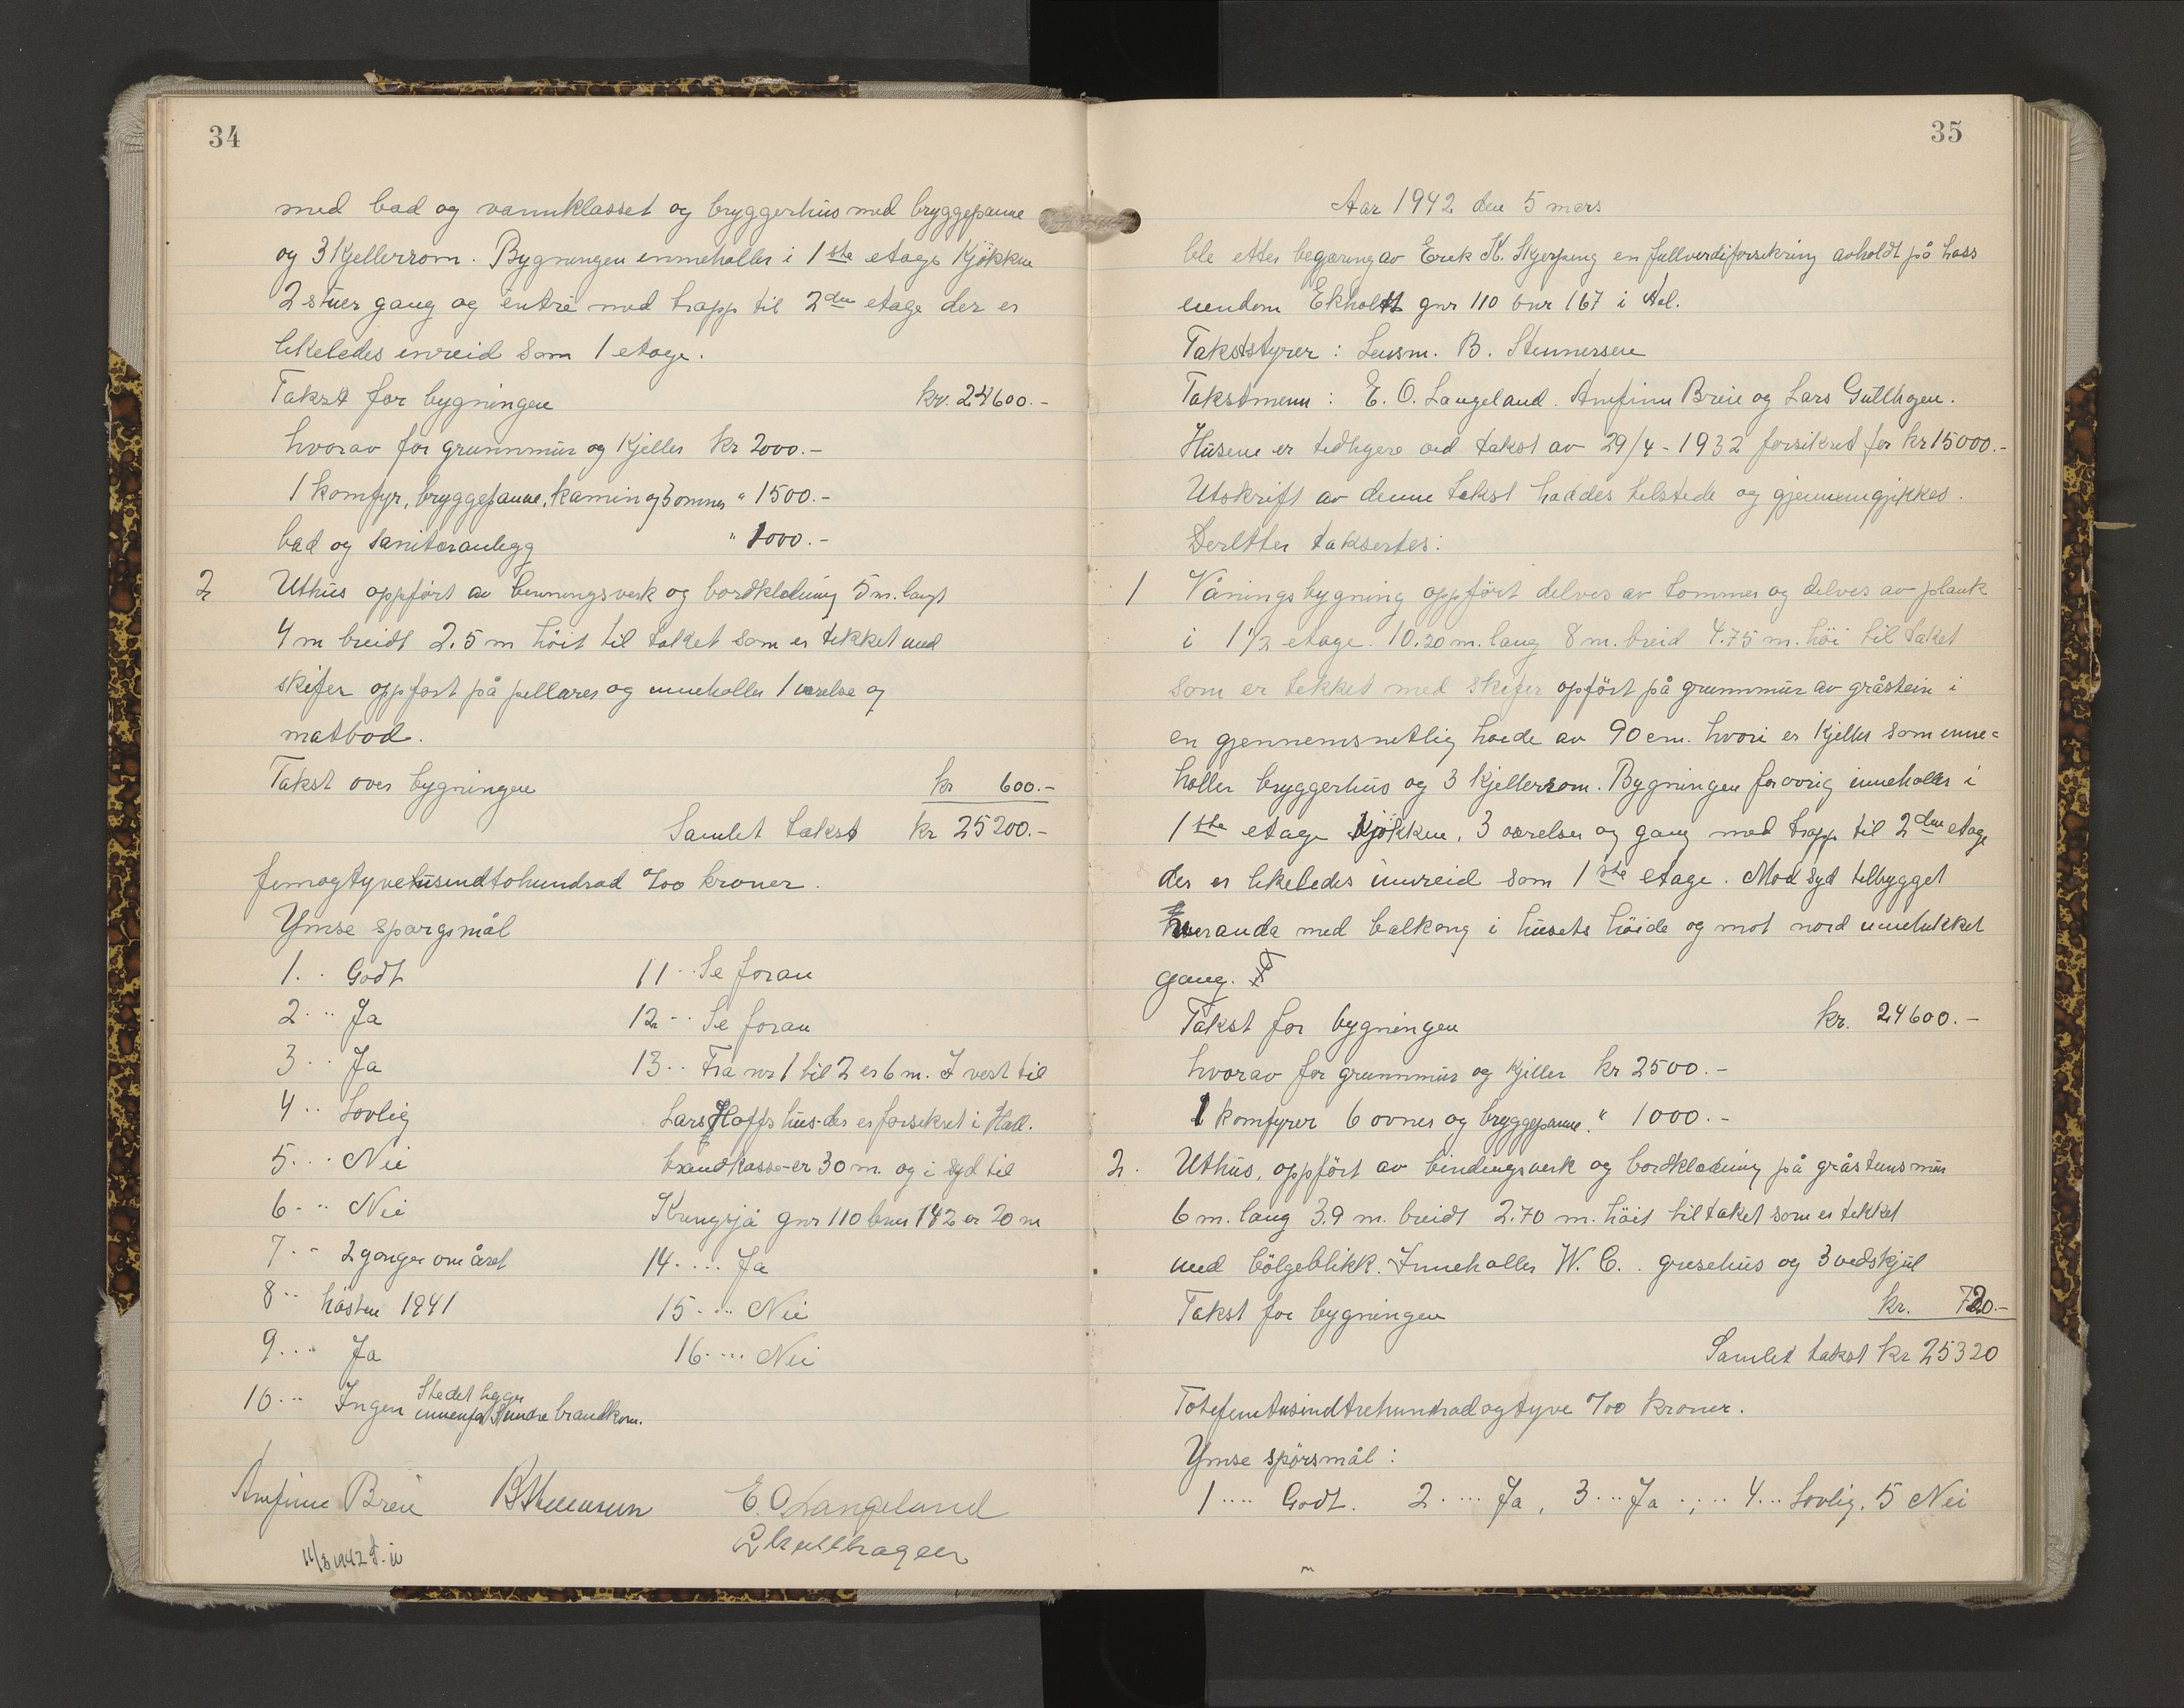 34
med bad og vannklasset og bryggerhus med bryggepanne
og 3 Kjellerrom. Bygningen inneholler i 1ste etage Kjökken
2 stuer gang og entré med trapp til 2den etage der er
likeledes inreid som 1 etage.
Takst for bygningen kr. 24600.-
hvorav for grunnmur og Kjeller kr 2000.-
1 komfyr, bryggepanne, kamin og 3 ovner " 1500.-
bad og sanitæranlegg " 1000.-
2 Uthus oppfört av benningsverk og bordkledning 5 m. langt
4 m breidt 2.5 m höit til taket som er tekket med
skifer oppført på pellarer og inneholler 1 værelse og
matbod.
Takst over bygningen kr 600.-
Samlet takst kr 25200.-
femogtyvetusendtohundrad 0/00 kroner.
Ymse spørgsmål
1.. Godt 11.. Se foran
2... Ja 12... Se foran
3... Ja 13.. Fra nr 1 til 2 er 6 m. I vest til
4.. Lovlig Lars Hoffs hus- der er forsikret i Hall.
5... Nei brandkasse- er 30 m. og i syd til
6... Nei Kringsjå gnr 110 bnr 142 er 20 m
7... 2 ganger om året 14.... Ja
8.. hösten 1941 15.... Nei
9.... Ja 16.... Nei
10... Ingen Stedet ligger
innenfor Sundre brandkom.
Arnfinn Breie BStennersen E. O Langeland
LGullhagen
11/3 1942
35
Aar 1942 den 5 mars
ble etter begæring av Erik K. Skjerping en fullverdiforsikring avholdt på hass
eiendom Ekholdt gnr 110 bnr 167 i Aal.
Takststyrer: Lensm. B. Stennersen
Takstmenn: E. O. Langeland. Arnfinn Breie og Lars Gullhagen.
Husene er tidligere ved takst av 29/4-1932 forsikret for kr 15000.-
Utskrift av denne takst haddes tilstede og gjennemgikkes.
Deretter taksertes:
1 Våningsbygning oppfört delves av tommer og delves av plank
i 1 1/2 etage. 10.20 m. lang 8 m. breid 4.75 m. höi til taket
som er tekket med skifer opfört på grunnmur av gråstein i
en gjennemsnetlig høide av 90 cm. hvori er Kjeller som inne=
holler bryggerhus og 3 Kjellerrom. Bygningen forøvrig inneholler i
1ste etage Kjøkken, 3 værelser og gang med trapp til 2den etage
der er likeledes innreid som 1ste etage. Mod syd tilbygget
veranda med balkong i husets höide og mot nord innelukket
gang.
Takst for bygningen kr. 24600.-
hvorav for grunnmur og Kjeller kr 2500.-
1 komfyrer 6 ovner og bryggepanne " 1000.-
2. Uthus, oppfört av bindingsverk og bordkledning på gråstensmur
6 m. lang 3.9 m. breidt 2.70 m. höit til taket som er tekket
med bölgeblikk. Inneholler W. C. . grisehus og 3 vedskjul
Takst for bygningen kr. 720.-
Samlet takst kr 25320
Totifemtusindtrehundradogtyve 0/00 kroner.
Ymse spörsmål:
1.... Godt. 2.... Ja, 3... Ja .,... 4... Lovlig, 5 Nei